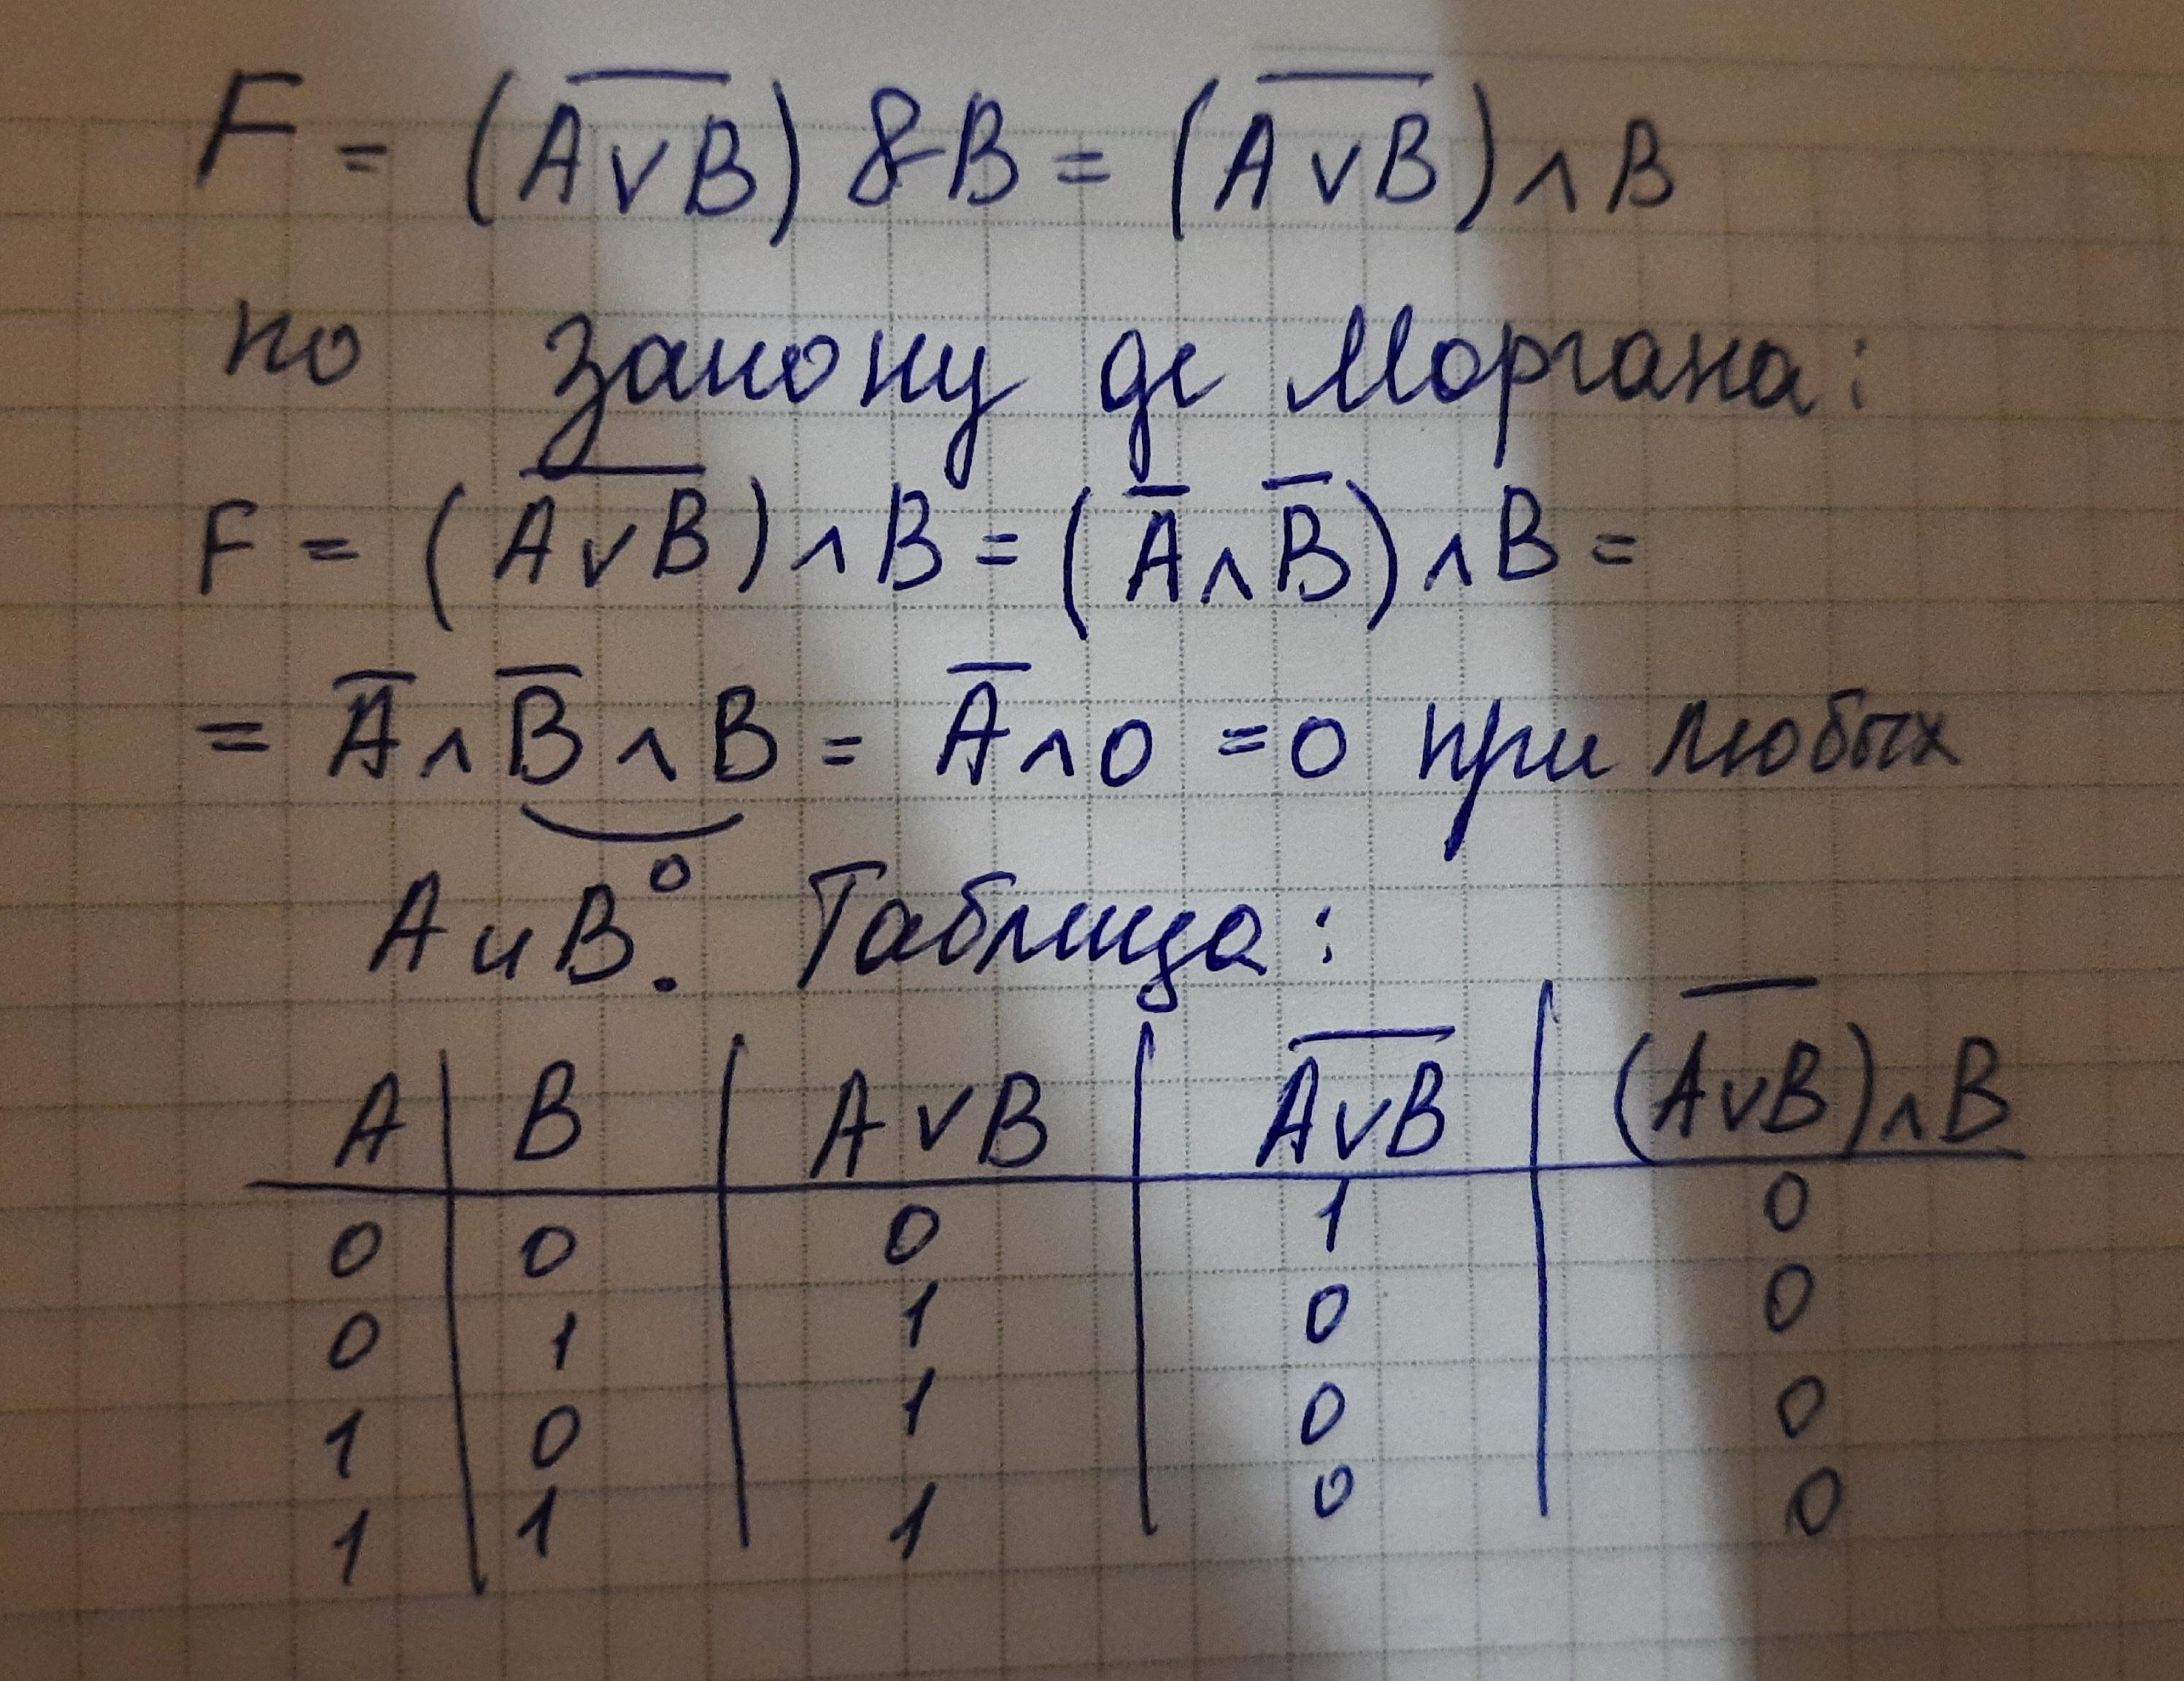 F = (A̅∨̅B̅) & B = (A̅ ∨̅ B̅) ∧ B
по закону де Моргана:
F = (A̅ ∨̅ B̅) ∧ B = (A̅ ∧ B̅) ∧ B =
= A̅ ∧ B̅ ∧ B = A̅ ∧ 0 = 0 при любых
0
A и B. Таблица:
A | B | A ∨ B | A̅ ∨̅ B̅ | (A̅ ∨̅ B̅) ∧ B
0 | 0 | 0 | 1 | 0
0 | 1 | 1 | 0 | 0
1 | 0 | 1 | 0 | 0
1 | 1 | 1 | 0 | 0